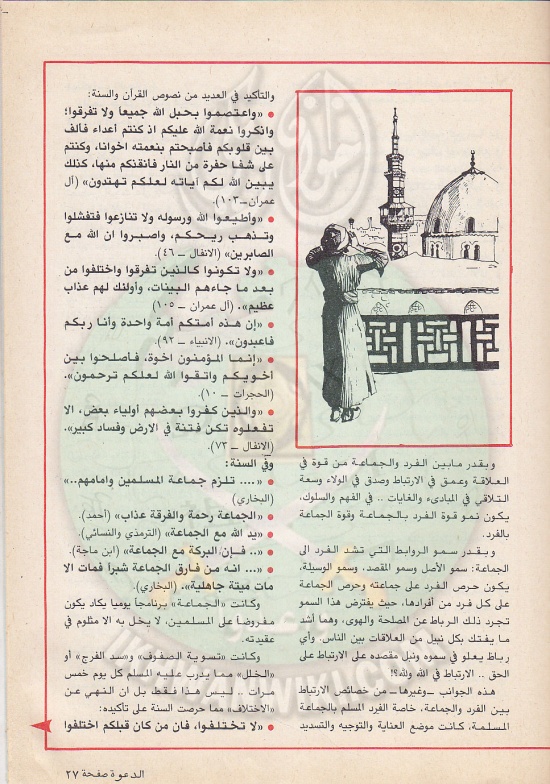 وبقدر مابين الفرد والجماعة من قوة في
العلاقة وعمق في الارتباط وصدق في الولاء وسعة
التلاقي في المبادىء والغايات .. في الفهم والسلوك،
يكون نمو قوة الفرد بالجماعة وقوة الجماعة
بالفرد.
وبقدر سمو الروابط التي تشد الفرد الى
الجماعة: سمو الأصل وسمو المقصد، وسمو الوسيلة.
يكون حرص الفرد على جماعته وحرص الجماعة
على كل فرد من أفرادها، حيث يفترض هذا السمو
تجرد ذلك الرباط عن المصلحة والهوى، وهما أشد
ما يفتك بكل نبيل من العلاقات بين الناس. وأي
رباط يعلو في سموه ونبل مقصده على الارتباط على
الحق .. الارتباط في الله ولله؟!
هذه الجوانب ــ وغيرها ــ من خصائص الارتباط
بين الفرد والجماعة، خاصة الفرد المسلم بالجماعة
المسلمة، كانت موضع العناية والتوجيه والتسديد
والتأكيد في العديد من نصوص القرآن والسنة:
● «واعتصموا بحبل الله جميعاً ولا تفرقوا؛
واذكروا نعمة الله عليكم اذ كنتم أعداء فألف
بين قلوبكم فأصبحتم بنعمته اخوانا، وكنتم
على شفا حفرة من النار فأنقذكم منها، كذلك
يبين الله لكم آياته لعلكم تهتدون» (آل
عمران ــ ١٠٣).
● «وأطيعوا الله ورسوله ولا تنازعوا فتفشلوا
وتذهب ريحكم، واصبروا ان الله مع
الصابرين» (الانفال ــ ٤٦).
● «ولا تكونوا كالذين تفرقوا واختلفوا من
بعد ما جاءهم البينات، وأولئك لهم عذاب
عظيم». (آل عمران ــ ١٠٥)
● «إن هذه أمتكم أمة واحدة وأنا ربكم
فاعبدون». (الانبياء ــ ٩٢).
● «إنما المؤمنون اخوة، فأصلحوا بين
أخويكم واتقوا الله لعلكم ترحمون».
(الحجرات ــ ١٠).
● «والذين كفروا بعضهم أولياء بعض، الا
تفعلوه تكن فتنة في الارض وفساد كبير».
(الانفال ــ ٧٣).
وفي السنة:
● «.... تلزم جماعة المسلمين وامامهم..»
(البخاري)
● «الجماعة رحمة والفرقة عذاب» (أحمد).
● «يد الله مع الجماعة» (الترمذي والنسائي).
● «.. فإن البركة مع الجماعة» (ابن ماجة).
● «... انه من فارق الجماعة شبراً فمات الا
مات ميتة جاهلية». (البخاري).
وكانت «الجماعة» برنامجاً يوميا يكاد يكون
مفروضاً على المسلمين، لا يخل به الا مثلوم في
عقيدته.
وكانت «تسوية الصفوف» و«سد الفرج» أو
«الخلل» مما يدرب عليه المسلم كل يوم خمس
مرات .. ليس هذا فقط بل ان النهي عن
«الاختلاف» مما حرصت السنة على تأكيده:
● «لا تختلفوا، فان من كان قبلكم اختلفوا
الدعوة صفحة ٢٧